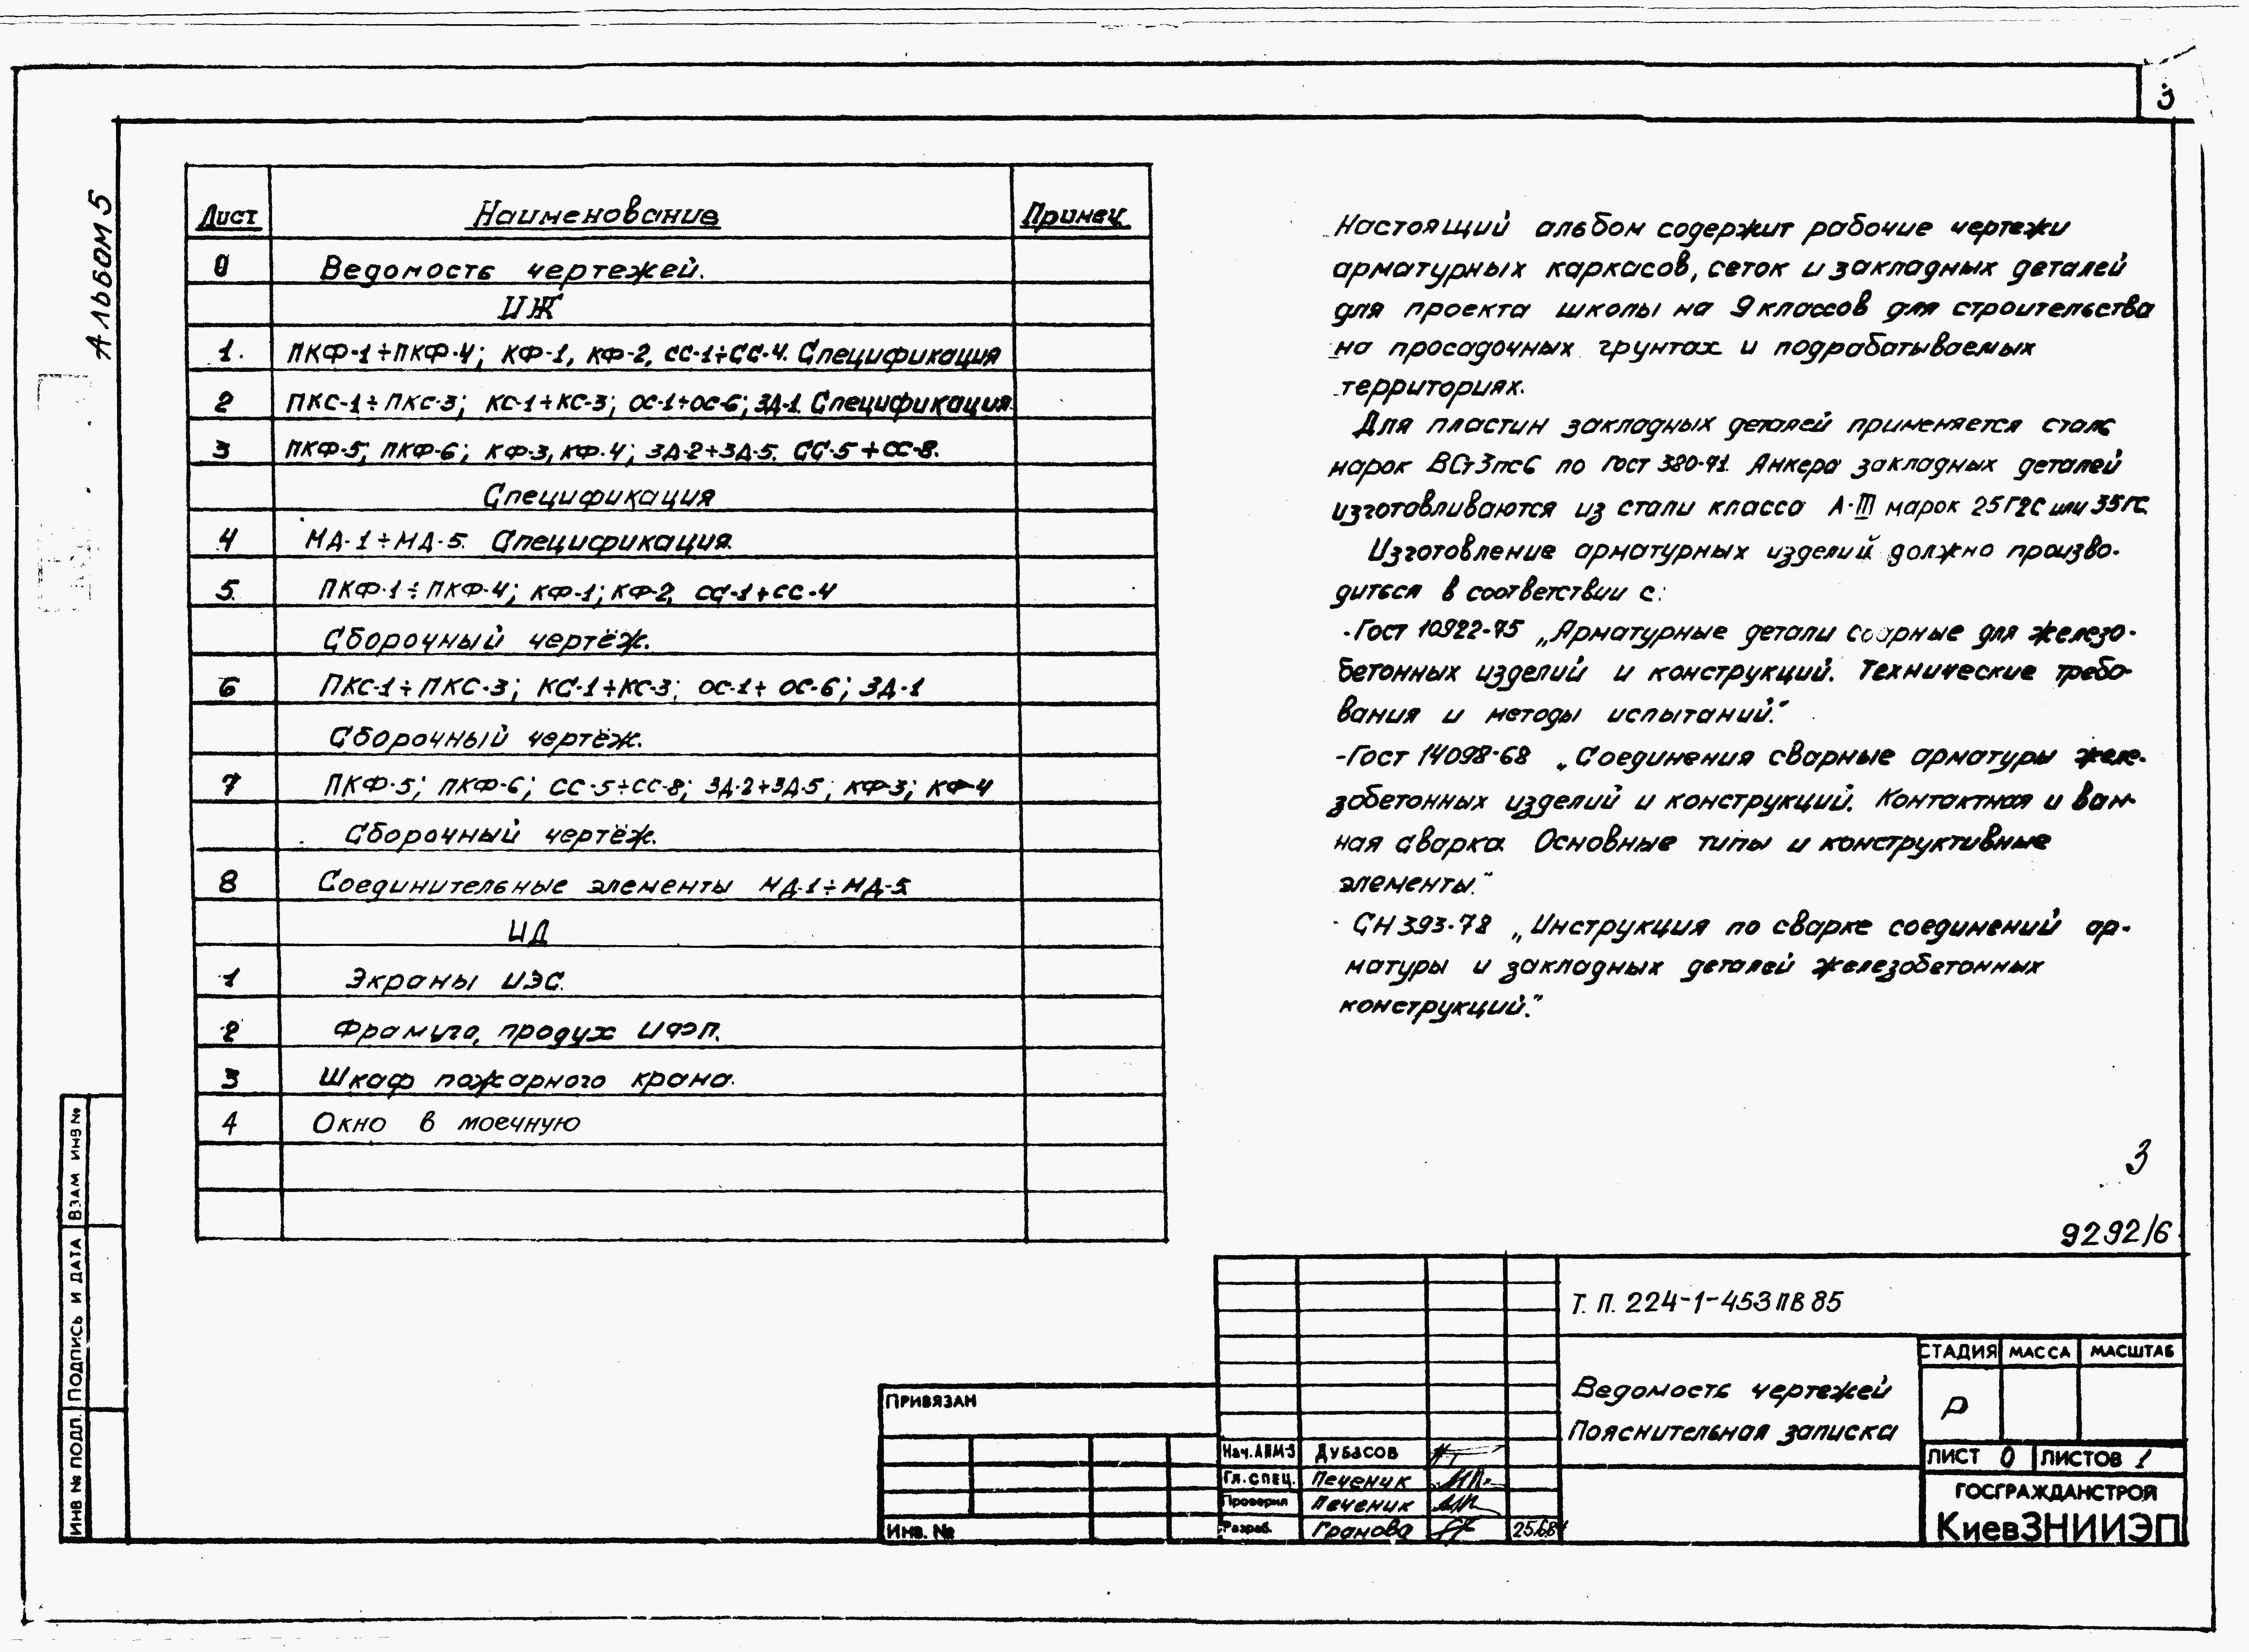 3
Альбом 5
Лист Наименование Примеч.
0 Ведомость чертежей.
ИЖ
1. ПКФ-1÷ПКФ-4; КФ-1, КФ-2, СС-1÷СС-4. Спецификация
2 ПКС-1÷ПКС-3; КС-1÷КС-3; ОС-1÷ОС-6; ЗД-1. Спецификация.
3 ПКФ-5; ПКФ-6; КФ-3, КФ-4; ЗД-2÷ЗД-5. СС-5÷СС-8.
Спецификация
4 МД-1÷МД-5. Спецификация.
5 ПКФ-1÷ПКФ-4; КФ-1; КФ-2, СС-1÷СС-4
Сборочный чертёж.
6 ПКС-1÷ПКС-3; КС-1÷КС-3; ОС-1÷ОС-6; ЗД-1
Сборочный чертёж.
7 ПКФ-5; ПКФ-6; СС-5÷СС-8; ЗД-2÷ЗД-5; КФ-3; КФ-4
Сборочный чертёж.
8 Соединительные элементы МД-1÷МД-5
ИД
1 Экраны ИЭС.
2 Фрамуга, продух ИФЭП.
3 Шкаф пожарного крана.
4 Окно в моечную
Настоящий альбом содержит рабочие чертежи
арматурных каркасов, сеток и закладных деталей
для проекта школы на 9 классов для строительства
на просадочных грунтах и подрабатываемых
территориях.
Для пластин закладных деталей применяется сталь
марок ВСт3пс6 по гост 380-71. Анкера закладных деталей
изготавливаются из стали класса А-III марок 25Г2С или 35ГС.
Изготовление арматурных изделий должно произво-
диться в соответствии с:
-Гост 10922-75 „Арматурные детали сварные для железо-
бетонных изделий и конструкций. Технические требо-
вания и методы испытаний."
-Гост 14098-68 „Соединения сварные арматуры желе-
зобетонных изделий и конструкций. Контактная и ван-
ная сварка. Основные типы и конструктивные
элементы."
- СН 393-78 „Инструкция по сварке соединений ар-
матуры и закладных деталей железобетонных
конструкций."
3
9292/6
Т. П. 224-1-453ПВ85
Ведомость чертежей
Пояснительная записка
СТАДИЯ МАССА МАСШТАБ
Р
ЛИСТ 0 ЛИСТОВ 1
ГОСГРАЖДАНСТРОЙ
КиевЗНИИЭП
ПРИВЯЗАН
Инв. №
Нач. АПМ-3 Дубасов
Гл. спец. Печеник
Проверил Печеник
Разраб. Гранова 25.6.84
ИНВ № ПОДЛ. ПОДПИСЬ И ДАТА ВЗАМ ИНВ №